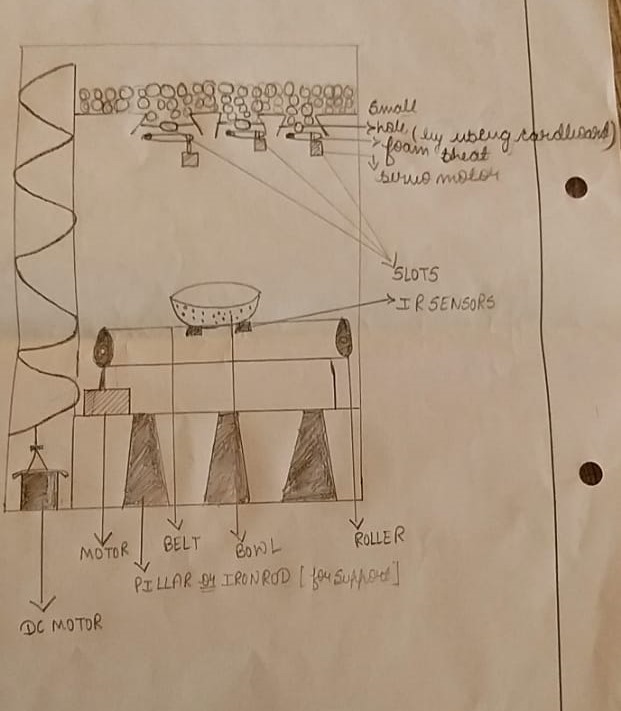 Small
hole (by using cardboard)
foam sheat
servo motor
SLOTS
IR SENSORS
MOTOR
BELT
BOWL
ROLLER
PILLAR or IRONROD [for support]
DC MOTOR